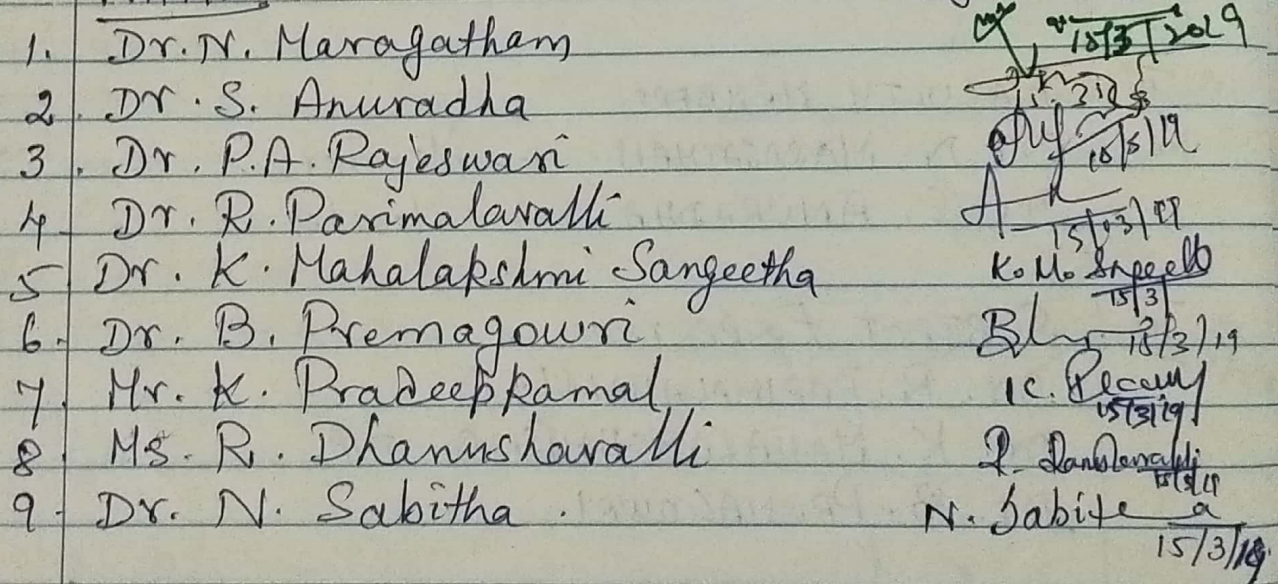 1. Dr. N. Maragatham 15/3/2019
2. Dr. S. Anuradha
3. Dr. P.A. Rajeswari 15/3/19
4. Dr. R. Parimalavalli 15/03/19
5. Dr. K. Mahalakshmi Sangeetha K. M. 15/3
6. Dr. B. Premagowri 15/3/19
7. Mr. K. Pradeepkamal K. 15/3/19
8. Ms. R. Dhanushavalli R. 15/3/19
9. Dr. N. Sabitha. N. Sabitha 15/3/19